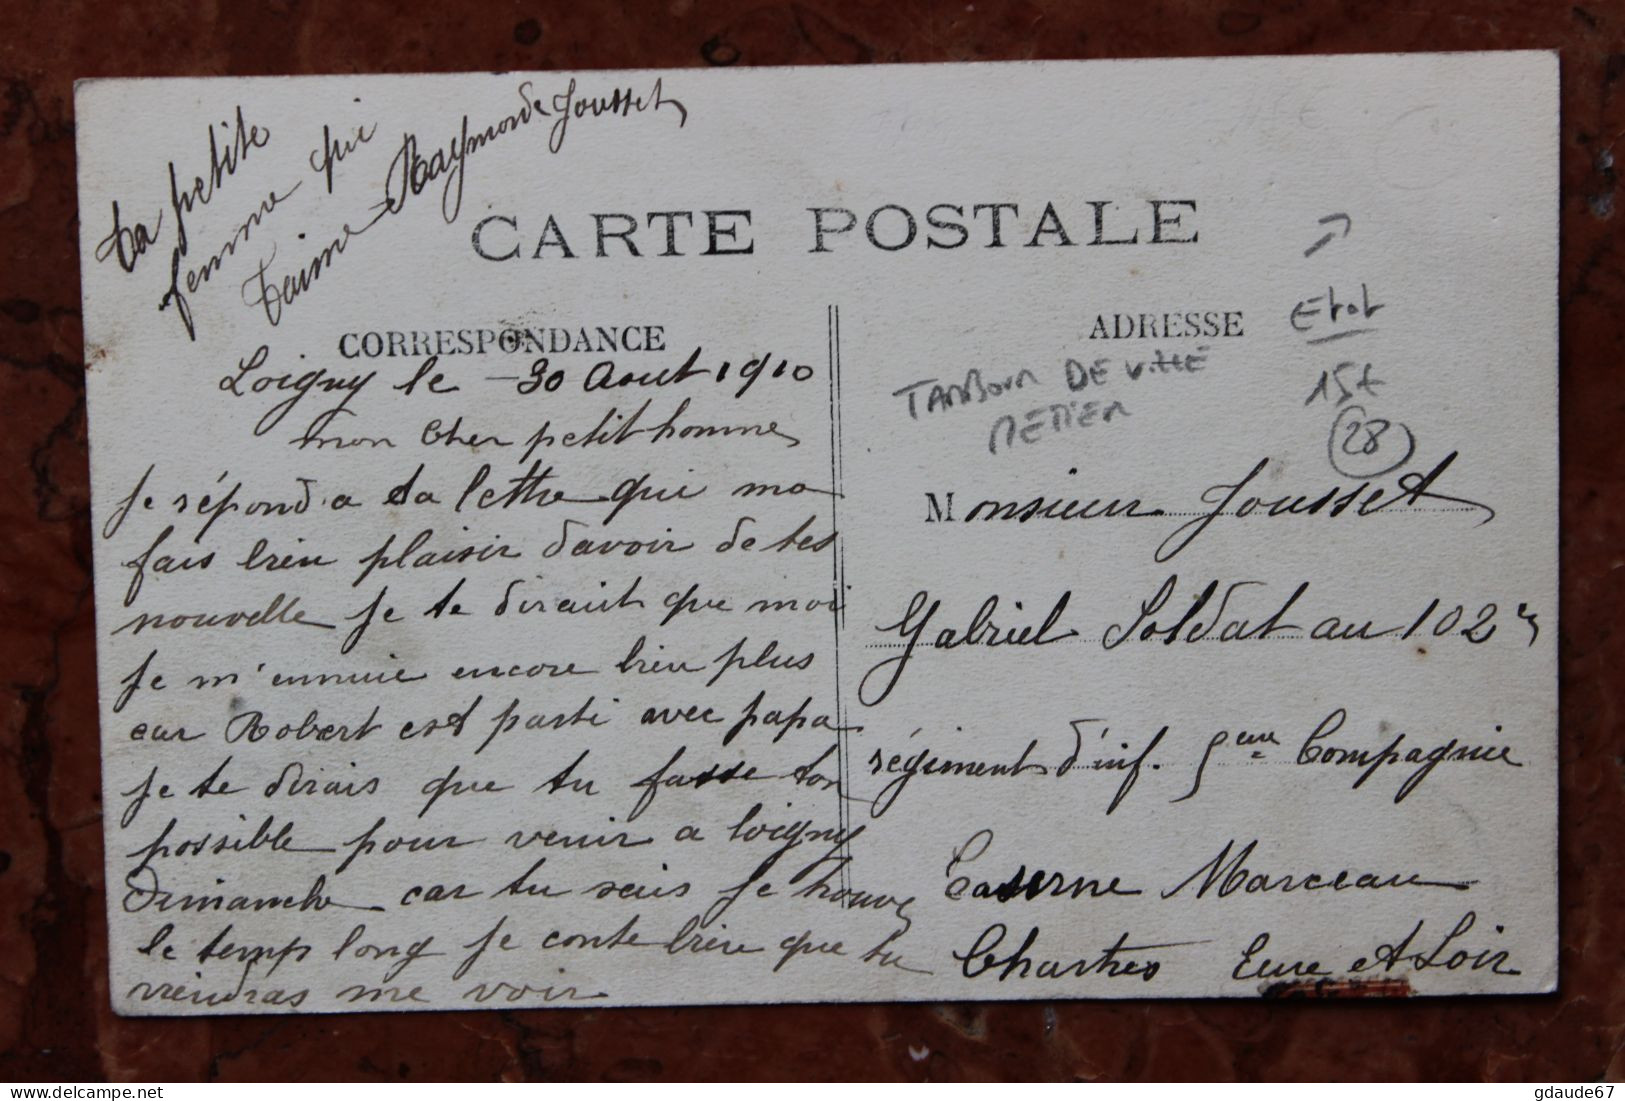 Ta petite
femme qui
t'aime Raymonde Jousset
CARTE POSTALE
CORRESPONDANCE
ADRESSE
Loigny le 30 Aout 1910
mon Cher petit homme
Je répond a ta lettre qui ma
fais bien plaisir davoir de tes
nouvelle je te dirait que moi
je m'ennuie encore bien plus
car Robert est parti avec papa
je te dirais que tu fasse ton
possible pour venir a loigny
Dimanche car tu sais je trouve
le temp long je conte bien que tu
viendras me voir
TAMBOUR DE VILLE
METIER
Etat
15€
28
Monsieur Jousset
Gabriel Soldat au 102e
régiment d'inf. 5eme Compagnie
Caserne Marceau
Chartres Eure et Loir
delcampe.net
gdaude67